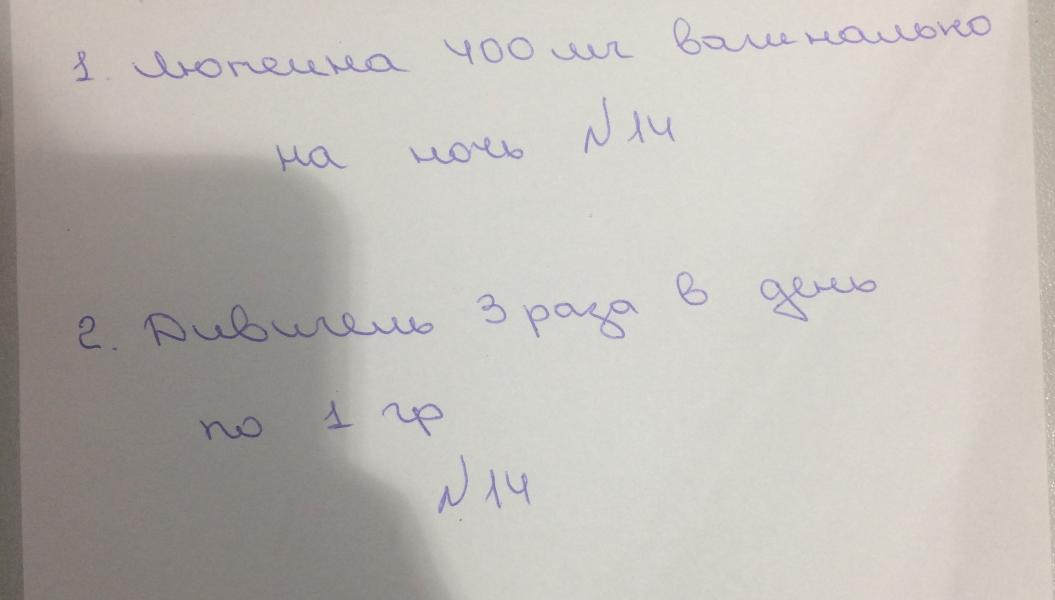 1. Лютеина 400 мг вагинально
на ночь N14
2. Дивигель 3 раза в день
по 1 гр
N14